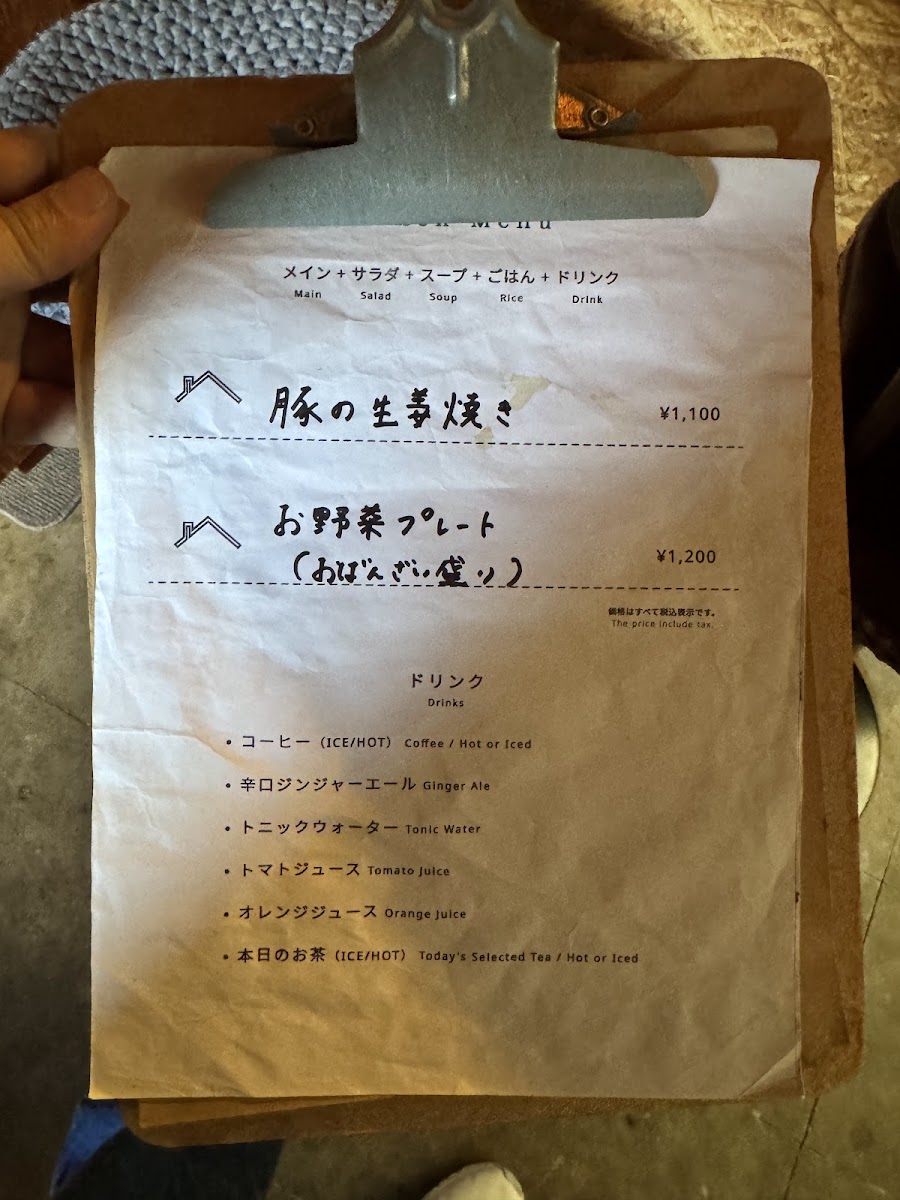 Menu
メイン + サラダ + スープ + ごはん + ドリンク
Main Salad Soup Rice Drink
豚の生姜焼き ¥1,100
お野菜プレート
(おばんざい盛り) ¥1,200
価格はすべて税込表示です。
The price include tax.
ドリンク
Drinks
• コーヒー（ICE/HOT） Coffee / Hot or Iced
• 辛口ジンジャーエール Ginger Ale
• トニックウォーター Tonic Water
• トマトジュース Tomato Juice
• オレンジジュース Orange Juice
• 本日のお茶（ICE/HOT） Today's Selected Tea / Hot or Iced